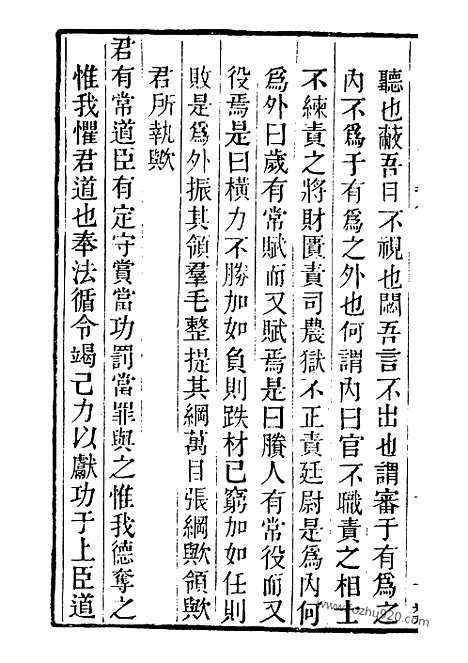 聽也蔽吾目不視也悶吾言不出也謂審于有爲之
內不爲于有爲之外也何謂內曰官不職責之相士
不練責之將財匱責司農獄不正責廷尉是爲內何
爲外曰歲有常賦而又賦焉是曰賸人有常役而又
役焉是曰橫力不勝加如負則跌材已窮加如任則
敗是爲外振其領羣毛整提其綱萬目張綱歟領歟
君所執歟
君有常道臣有定守賞當功罰當罪與之惟我德奪之
惟我懼君道也奉法循令竭己力以獻功于上臣道
www.fozhu920.com